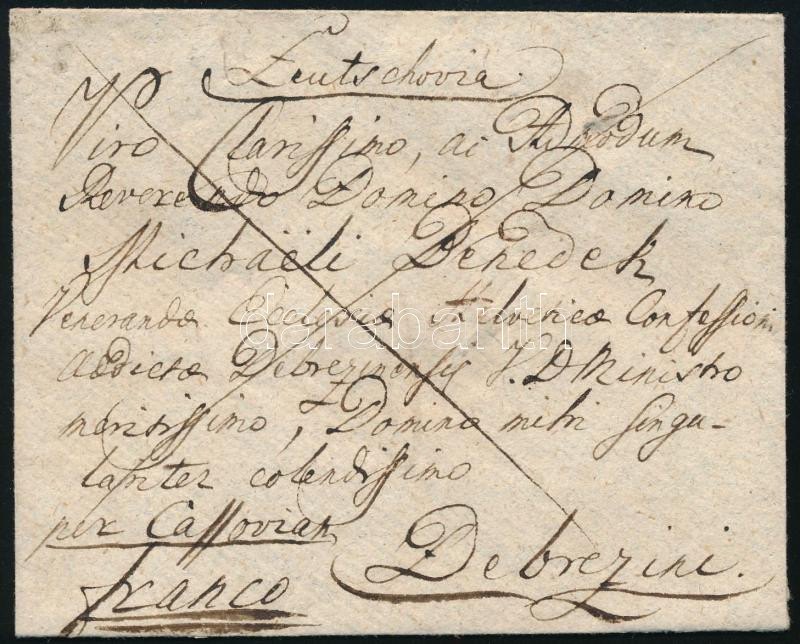 Leutschovia
Viro Clarissimo, ac Admodum
Reverendo Domino, Domino
Michaëli Benedek
Venerandæ Ecclesiæ Helveticæ Confessioni
addictæ Debrezinensis V. D Ministro
meritissimo, Domino mihi singu-
lariter colendissimo
per Cassoviam
franco
Debrezini.
darabanth